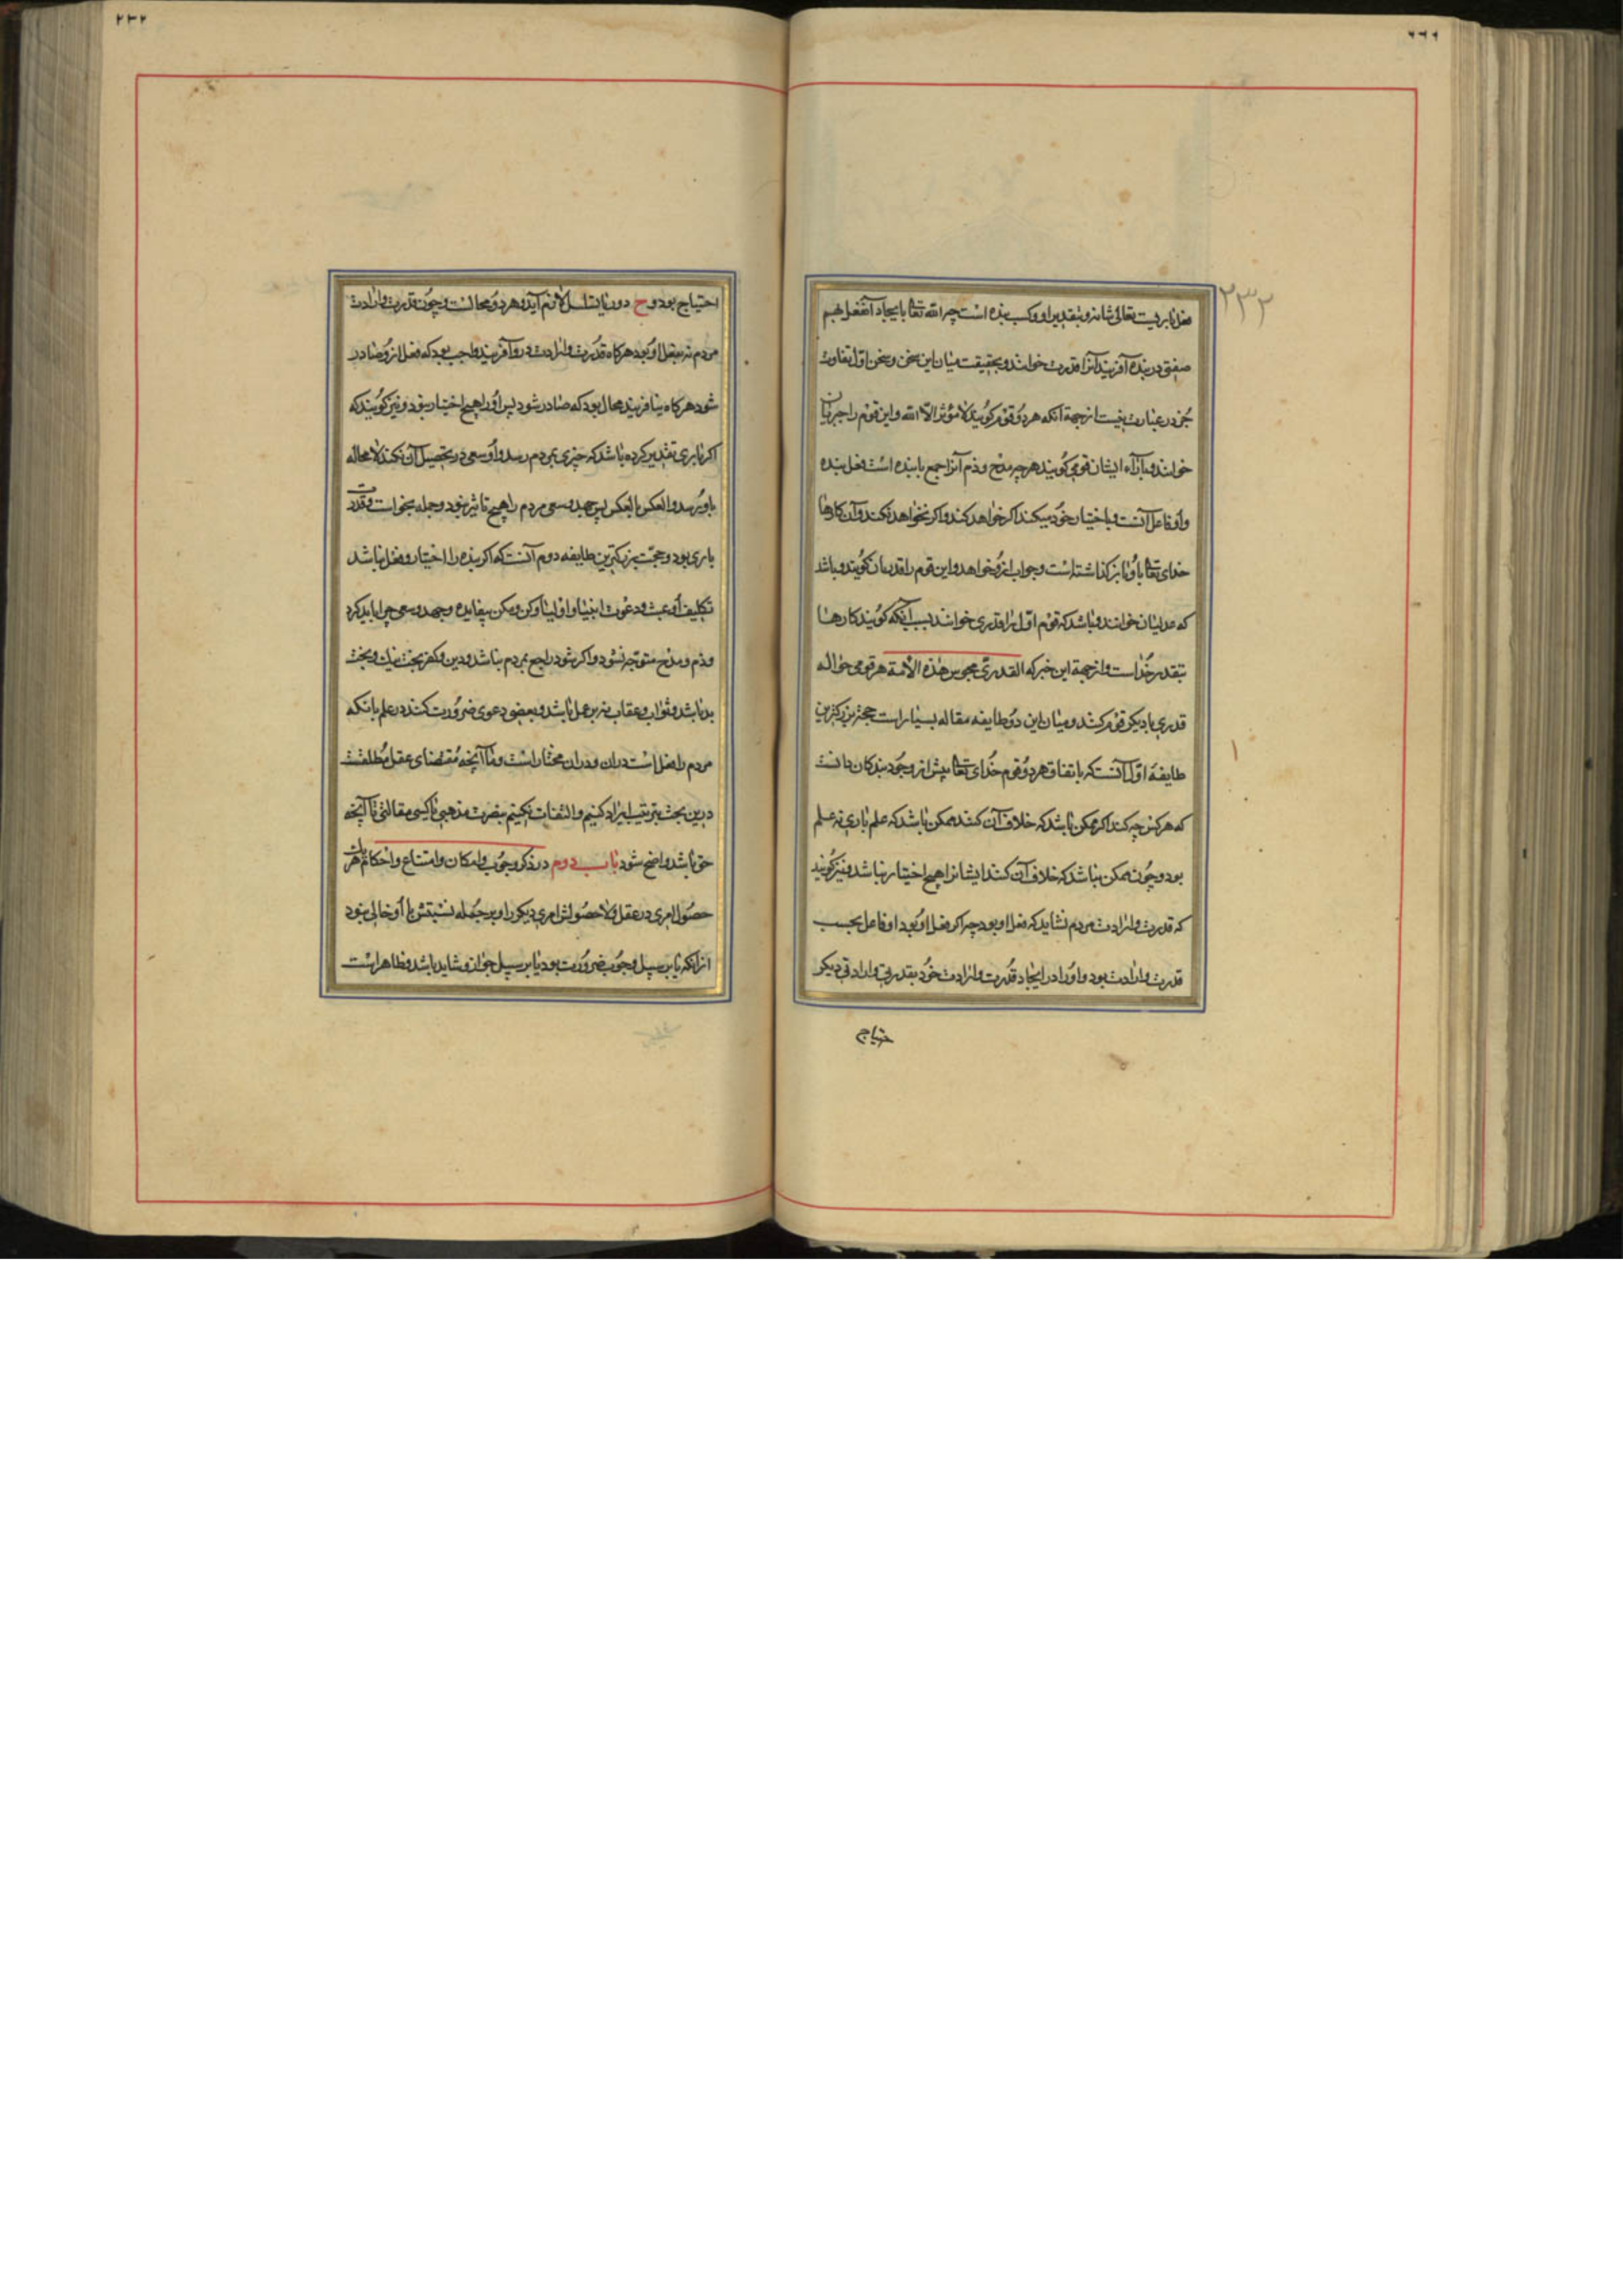 ۲۳۳
فعل باریست تعالی شانه و بتقدیر او و کسب بنده است چه الله تعا با یجاد آن فعل بهم
صفتی در بنده آفریند آنرا قدرت خوانند و بحقیقت میان این سخن و سخن اول تفاوت
جز در عبارت نیست از جهة آنکه هر دو قوم گویند لا مؤثر الا الله و این قوم را جبریان
خوانند و بازاء ایشان قومی گویند هر چه مدح و ذم آنرا جمع با بنده است فعل بنده
و او فاعل آنست و باختیار خود میکند اگر خواهد کند و اگر نخواهد نکند و آن کارها
خدای تعا با او باز گذاشته است و جواب ازو خواهد و این قوم را قدریان گویند و باشد
که عدلیان خوانند و باشد که قوم اول را قدری خوانند بسبب آنکه گویند کارها
بتقدیر خداست و از جهة این خبر که القدری مجوس هذه الامة هر قومی حواله
قدری با دیگر قوم کنند و میان این دو طایفه مقاله بسیار است حجة بزرکترین
طایفۀ اول آنست که باتفاق هر دو قوم خدای تعا پیش از وجود بندکان دانست
که هر کس چه کند اگر ممکن باشد که خلاف آن کنند ممکن باشد که علم باری نه علم
بود و چون ممکن نباشد که خلاف آن کنند ایشانرا هیچ اختیار نباشد و نیز گویند
که قدرت و ارادت مردم نشاید که فعل او بود چه اگر فعل او بود او فاعل بحسب
قدرت و ارادت بود و او را در ایجاد قدرت و ارادت خود بقدرتی و ارادتی دیگر
حتیاج
۲۳۲
احتیاج بود و ح دور یا تسلسل لازم آید و هر دو محالست و چون قدرت و ارادت
مردم نه بفعل او بود هر کاه قدرت و ارادت درو آفریند واجب بود که فعل ازو صادر
شود هر کاه نیافریند محال بود که صادر شود پس او را هیچ اختیار نبود و نیز گویند که
اکر باری تقدیر کرده باشد که چیزی بمردم رسد و او سعی در تحصیل آن نکند لا محاله
باو برسد و العکس بالعکس پس جهد و سعی مردم را هیچ تاثیر نبود و جمله بخواست و قدرت
باری بود و حجّت بزرکترین طایفه دوم آنست که اکر بنده را اختیار و فعل نباشد
تکلیف او عبث و دعوت انبیا و اولیا و کن و مکن بیفایده و جهد و سعی چرا باید کرد
و ذم و مدح متوجه نشود و اکر شود راجع بمردم نباشد و دین و کفر بجث نیک و بخت
بد باشد و ثواب و عقاب نه بر عمل باشد و بعضی دعوی ضرورت کنند در علم بانکه
مردم را فعل است دران و دران مختار است و ما آنچه مقتضای عقل مطلقست
درین بحث بترتیب ایراد کنیم و التفات نکنیم بنصرت مذهبی یا کسی مقالتی تا آنچه
حق باشد واضح شود باب دوم در ذکر وجوب و امکان و امتناع و احکام هر یک
حصول امری در عقل و لا حصولش امری دیگر را و بر جمله نسبتش با او خالی نبود
ازانکه یا بر سبیل وجوب ضرورت بود یا بر سبیل جواز و شاید باشد و ظاهر است